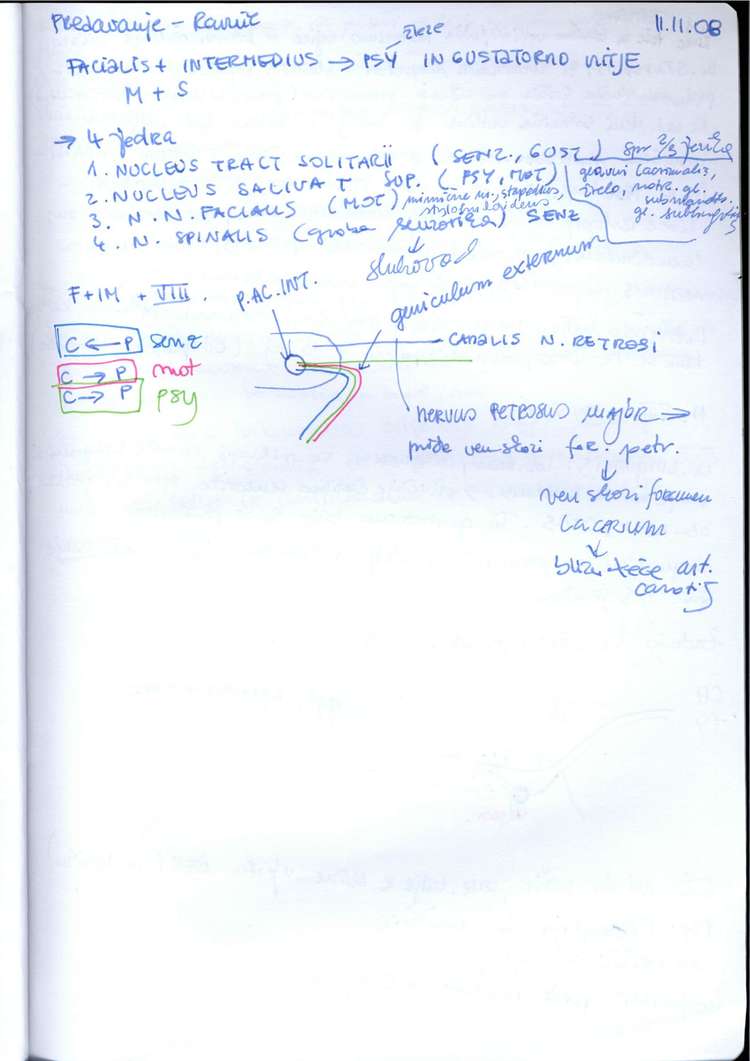 Predavanje - Ravnič 11.11.08
žleze
FACIALIS + INTERMEDIUS → PSY IN GUSTATORNO NITJE
M + S
→ 4 jedra
1. NUCLEUS TRACT SOLITARII (SENZ., GUST.) spr 2/3 jezika
2. NUCLEUS SALIVAT SUP. (PSY, MOT) glavni lacrimalis,
žrelo, notr. gl.
submandib.
gl. sublingualis
3. N. N. FACIALIS (MOT) mimične m., stapedius,
stylohyoideus
4. N. SPINALIS (groba senzorika) SENZ
↓
sluhovod
F+IM + VIII. P.AC.INT. geniculum externum
C ← P senz
C → P mot
C → P psy
CANALIS N. PETROSI
NERVUS PETROSUS MAJOR →
pride ven skozi for. petr.
↓
ven skozi foramen
LACERUM
↓
blizu teče art.
carotis